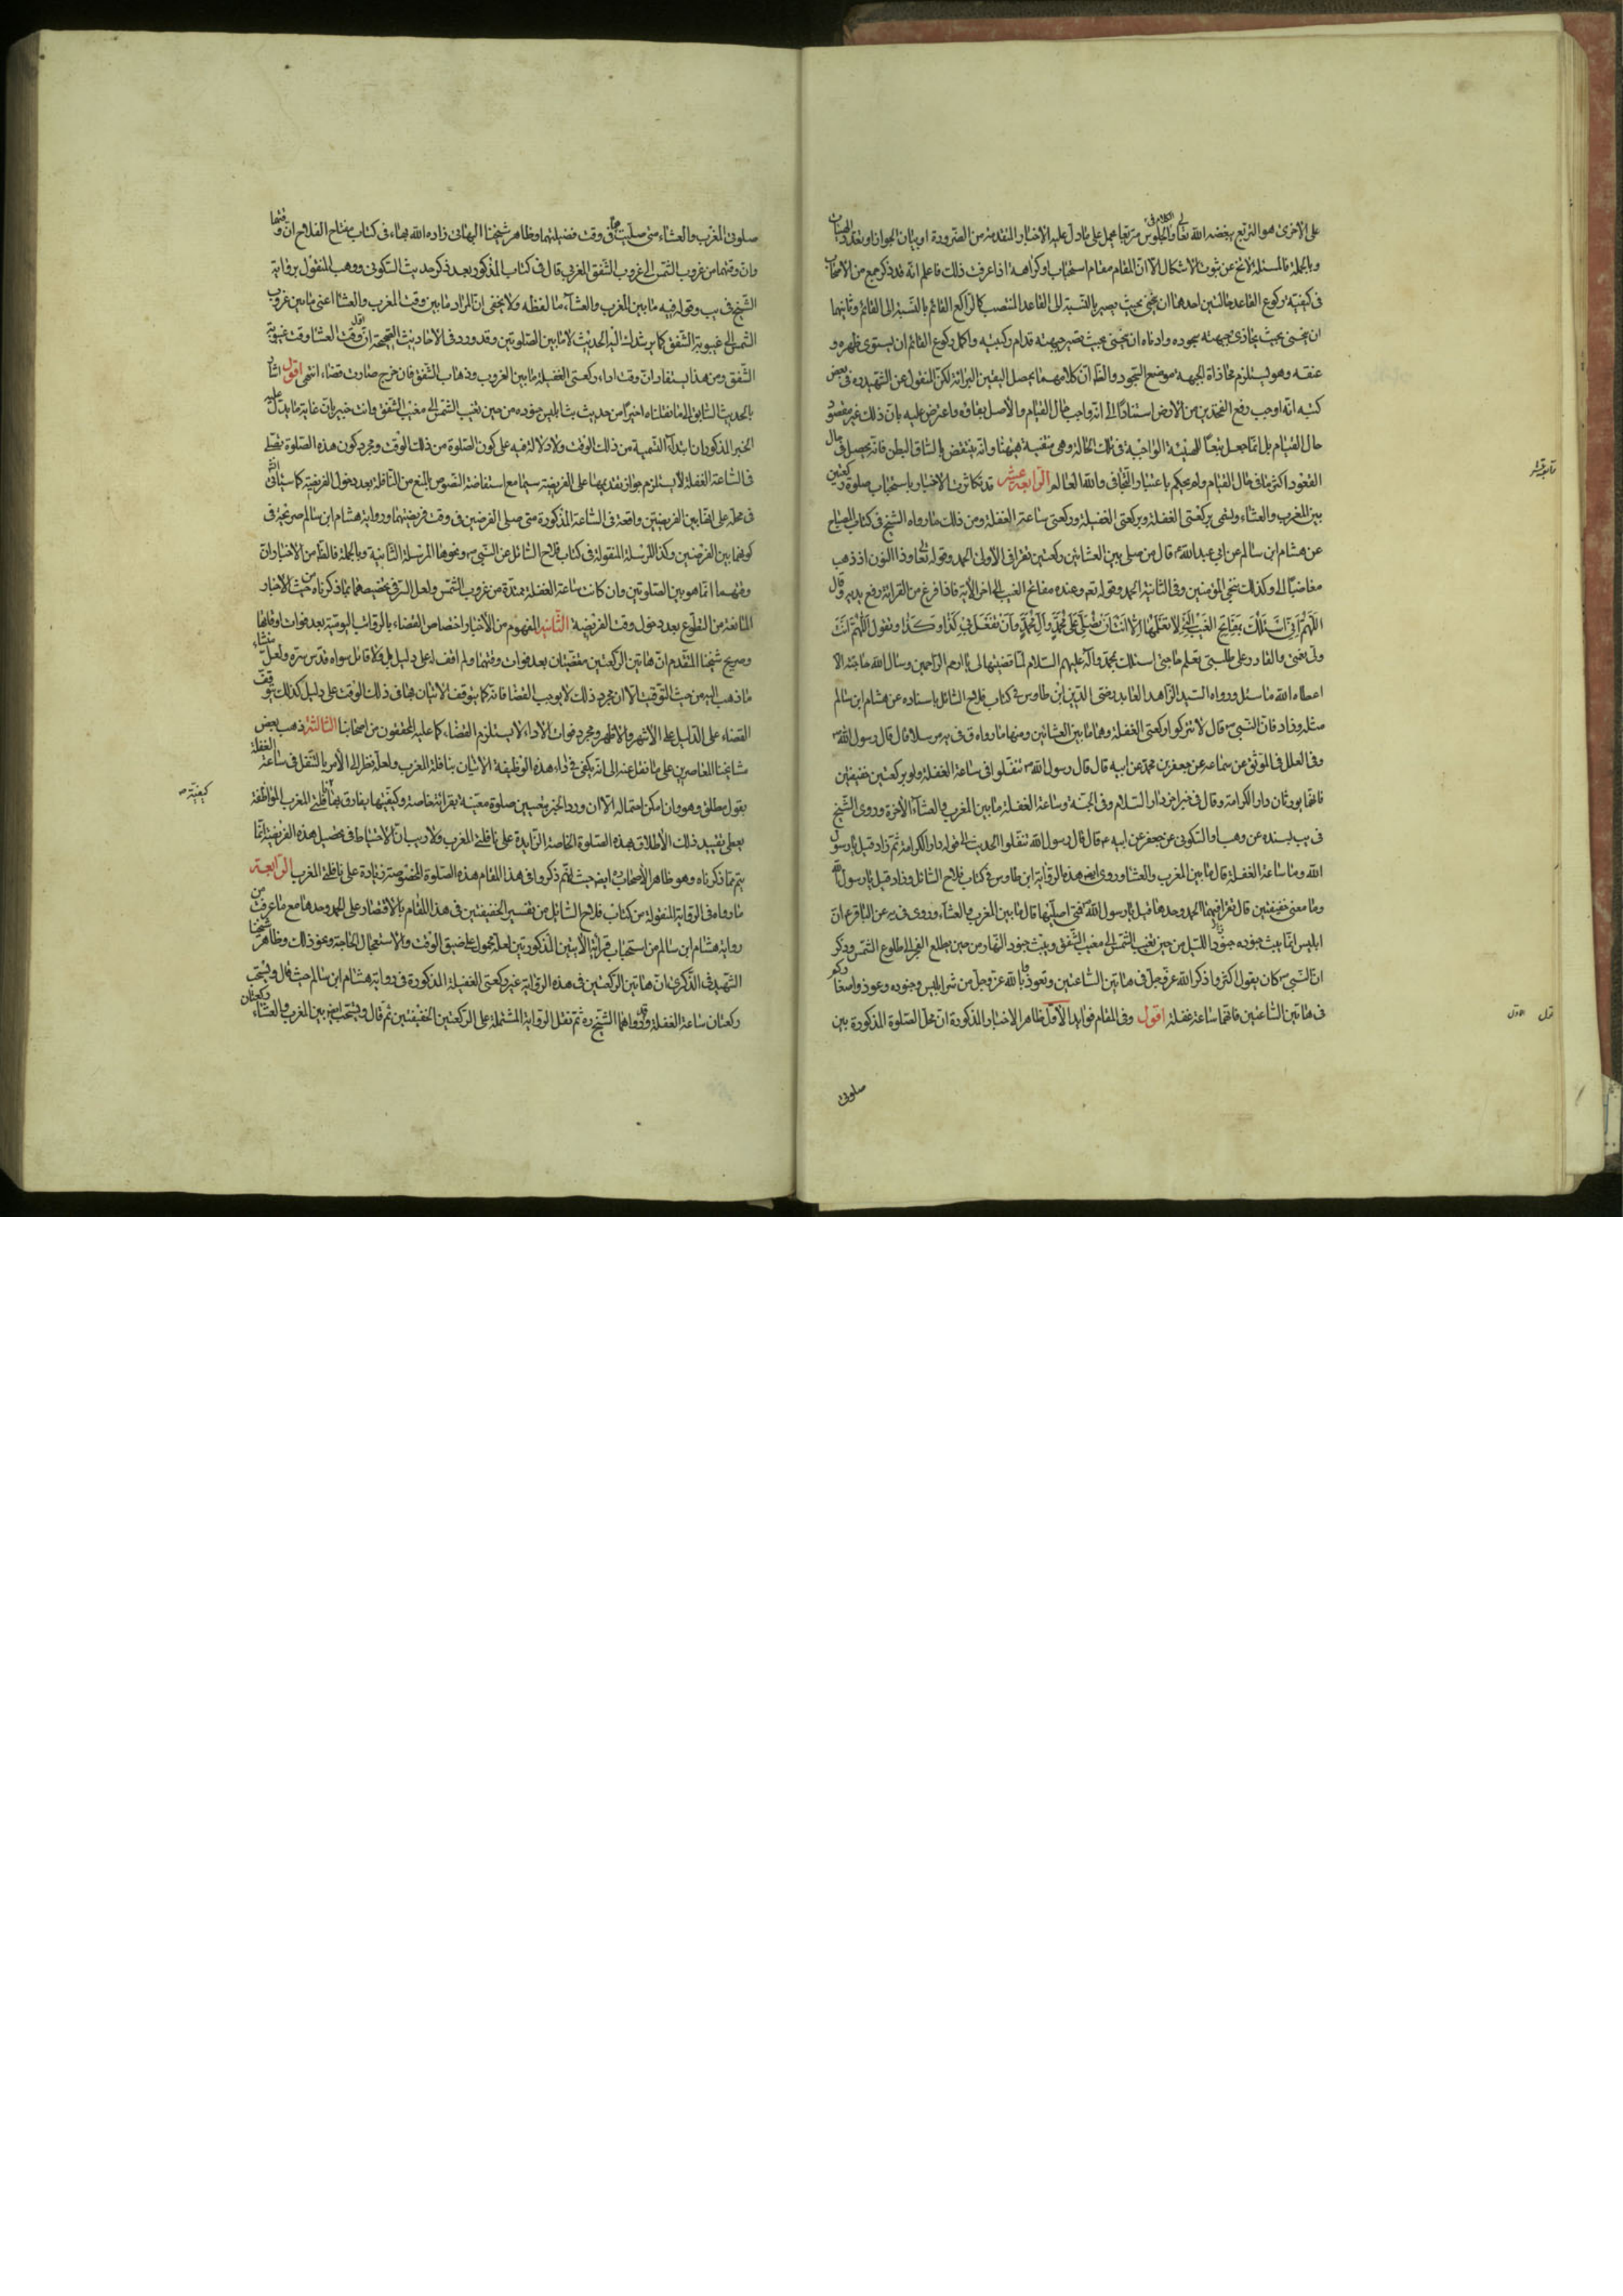 على الاخرى هو التربع يبغضه الله تعالى والجلوس متربعا محمل على ما دل عليه الاخبار المتقدمة من الضرورة او بيان الجواز او تعدد
وبالجملة فالمسئلة لا تخ عن ثبوت الاشكال الا ان المقام مقام استحباب وكراهة اذا عرفت ذلك فاعلم انه قد ذكر جمع من الاصحاب
فى كيفية ركوع القاعد حالتين احدهما ان ينحنى بحيث يصير بالنسبة الى القاعد المنتصب كالراكع القائم بالنسبة الى القائم وثانيهما
ان ينحنى بحيث يحاذى جبهته سجوده وادناه ان ينحنى بحيث تصير جبهته قدام ركبتيه واكمل ركوع القائم ان يستوى ظهره و
عنقه وهو يستلزم محاذاة الجبهه موضع السجود والظ ان كلا منهما يحصل اليقين البرائة لكن المنقول عن الشهيد ره فى بعض
كتبه انه اوجب رفع الفخذين من الارض استنادا الى انه واجب حال القيام والاصل بقاؤه واعترض عليه بان ذلك غير مقصود
حال القيام بل انما جعل تبعا للهيئة الواجبة فى تلك الحالة وهى منفية ههنا وانه ينتقض بالصاق البطن فانه يحصل فى حال
القعود اكثر منا فى حال القيام ولم يحكم باعتبار التجافى والله العالم الرابعة عشر قد تكاثرت الاخبار باستحباب صلوة ركعتين
بين المغرب والعشاء ولتسمى بركعتى الغفلة وبركعتى الغفيلة وركعتى ساعة الغفلة ومن ذلك ما رواه الشيخ فى كتاب المصباح
عن هشام ابن سالم عن ابى عبد الله ع قال من صلى بين العشائين ركعتين تقرا فى الاولى الحمد وقوله تعالى وذا النون اذ ذهب
مغاضبا الى وكذلك ننجى المؤمنين وفى الثانية الحمد وقوله تعم وعنده مفاتح الغيب الى اخر الاية فاذا فرغ من القرائة رفع يديه وقال
اللهم انى اسئلك بمفاتح الغيب التى لا يعلمها الا انت ان تصلى على محمد وآل محمد وان تفعل بى كذا وكذا وتقول اللهم انت
ولى نعمتى والقادر على طلبتى تعلم حاجتى اسئلك بمحمد وآله عليهم السلام لما قضيتها لى يا ارحم الراحمين وسال الله حاجته الا
اعطاه الله ما سئل ورواه السيد الزاهد العابد رضى الدين ابن طاوس فى كتاب فلاح السائل باسناده عن هشام ابن سالم
مثله وزاد فان النبى ص قال لا تتركوا ركعتى الغفلة وهما ما بين العشائين ومنها ما رواه ق فى يه مرسلا قال قال رسول الله ص
وفى العلل فى الموثق عن سماعه عن جعفر بن محمد عن ابيه قال قال رسول الله ص تنفلوا فى ساعة الغفلة ولو بركعتين خفيفتين
فانهما يورثان دار الكرامة وقال فى خبر اخر دار السلام وفى الجنة وساعة الغفلة ما بين المغرب والعشاء الاخرة وروى الشيخ
فى يب بسنده عن وهب او السكونى عن جعفر عن ابيه ع قال قال رسول الله تنفلوا الحديث الى قوله دار الكرامة ثم زاد قيل يا رسول
الله وما ساعة الغفلة قال ما بين المغرب والعشاء وروى ايض هذه الرواية ابن طاوس فى كتاب فلاح السائل وزاد قيل يا رسول الله
وما معنى خفيفتين قال تقرا فيهما الحمد وحدها قيل يا رسول الله فمتى اصليها قال ما بين المغرب والعشاء وروى فى يه عن الباقر ع ان
ابليس انما يبث جنوده جنود الليل من حين تغيب الشمس الى مغيب الشفق ويبث جنود النهار من حين يطلع الفجر الى طلوع الشمس وذكر
ان النبى ص كان يقول اكثروا ذكر الله عز وجل فى هاتين الساعتين وتعوذوا بالله عز وجل من شر ابليس وجنوده وعوذوا صغاركم
فى هاتين الساعتين فانهما ساعة غفلة اقول وفى المقام فوايد الاول ظاهر الاخبار المذكورة ان محل الصلوة المذكورة بين
صلوتى
صلوتى المغرب والعشاء متى صليت فى وقت فضيلتهما وظاهر شيخنا البهائى زاده الله بهاء فى كتاب مفتاح الفلاح ان وقتها
وان وقتهما من غروب الشمس الى غروب الشفق المغربى قال فى كتاب المذكور بعد ذكر حديث السكونى ووهب المنقول برواية
الشيخ فى يب وقوله فيه ما بين المغرب والعشاء ما لفظه ولا يخفى ان المراد ما بين وقت المغرب والعشا اعنى ما بين غروب
الشمس الى غيبوبة الشفق كما يرشد اليه الحديث لا ما بين الصلوتين وقد ورد فى الاحاديث الصحيحة ان اول وقت العشا وقت غيبوبة
الشفق ومن هذا يستفاد ان وقت اداء ركعتى الغفيلة ما بين الغروب وذهاب الشفق فان خرج صارت قضاء انتهى اقول اشار
بالحديث السابق الى ما نقلناه اخيرا من حديث بث ابليس جنوده من حين تغيب الشمس الى مغيب الشفق وانت خبير بان غاية ما يدل عليه
الخبر المذكور ان ابتداء التسمية من ذلك الوقت ولا دلالة فيه على كون الصلوة من ذلك الوقت ومجرد كون هذه الصلوة تصلى
فى الساعة الغفلة لا يستلزم جواز تقديمها على الفريضة سيما مع استفاضة النصوص بالمنع من النافلة بعد دخول الفريضة كما سياتى انش
فى محله على انها بين الفريضتين واقعة فى الساعة المذكورة متى صلى الفرضين فى وقت فريضتهما ورواية هشام ابن سالم صريحة فى
كونهما بين الفرضين وكذا المرسلة المنقولة فى كتاب فلاح السائل عن النبى ص ونحوها المرسلة الثانية وبالجملة فالظ من الاخبار ان
وقتهما انما هو بين الصلوتين وان كانت ساعة الغفلة ممتدة من غروب الشمس ولعل السر فى تخصيصهما بما ذكرناه من حيث الاخبار
المانعة من التطوع بعد دخول وقت الفريضة الثانية المفهوم من الاخبار اختصاص القضاء بالرواتب اليومية بعد فوات اوقاتها
وصريح شيخنا المتقدم ان هاتين الركعتين مقضيتان بعد فوات وقتهما ولم اقف له على دليل بل ولا قائل سواه قدس سره ولعل منشاء
ما ذهب اليه من حيث التوقيت الا ان مجرد ذلك لا يوجب القضا فانه كما يتوقف الاتيان بهما فى ذلك الوقت على دليل كذلك يتوقف
القضاء على الدليل على الاشهر والاظهر ومجرد فوات الاداء لا يستلزم القضاء كما عليه المحققون من اصحابنا الثالثة ذهب بعض
مشايخنا المعاصرين على ما نقل عنه الى انه يكفى فى اداء هذه الوظيفة الاتيان بنافلة المغرب ولعله نظر الى الامر بالتنفل فى ساعة الغفلة
بقول مطلق وهو وان امكن احتماله الا ان ورود الخبر بتعيين صلوة معينة بقرائة خاصة وكيفيتها يفارق بها نافلة المغرب الموظفة
يعطى تقييد ذلك الاطلاق بهذه الصلوة الخاصة الزايدة على نافلة المغرب ولا ريب ان الاحتياط فى تحصيل هذه الفريضة انما
يتم بما ذكرناه وهو ظاهر الاصحاب ايض حيث انهم ذكروا فى هذا المقام هذه الصلوة المخصوصة زيادة على نافلة المغرب الرابعة
ما رواه فى الرواية المنقولة من كتاب فلاح السائل من تفسير الخفيفتين فى هذا المقام بالاقتصار على الحمد وحدها مع ما عرفت من
رواية هشام ابن سالم من استحباب قرائة الايتين المذكورتين لعله محمول على ضيق الوقت والاستعجال لحاجة ونحو ذلك وظاهر شيخنا
الشهيد فى الذكرى ان هاتين الركعتين فى هذه الرواية غير ركعتى الغفيلة المذكورة فى رواية هشام ابن سالم حيث قال ويستحب
ركعتان ساعة الغفلة وقد رواهما الشيخ ره ثم نقل الرواية المشتملة على الركعتين الخفيفتين ثم قال ويستحب ايض بين المغرب والعشاء ركعتان